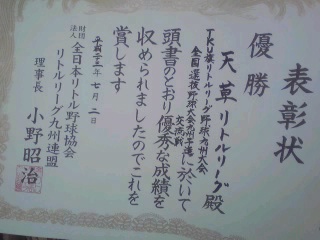 表彰状
優勝
天草リトルリーグ殿
TKU旗リトルリーグ野球九州大会
全国選抜野球大会九州予選
交流戦
に於いて
頭書のとおり優秀な成績を
収められましたのでこれを
賞します
平成二十二年七月二日
財団法人 全日本リトル野球協会
リトルリーグ九州連盟
理事長 小野昭治